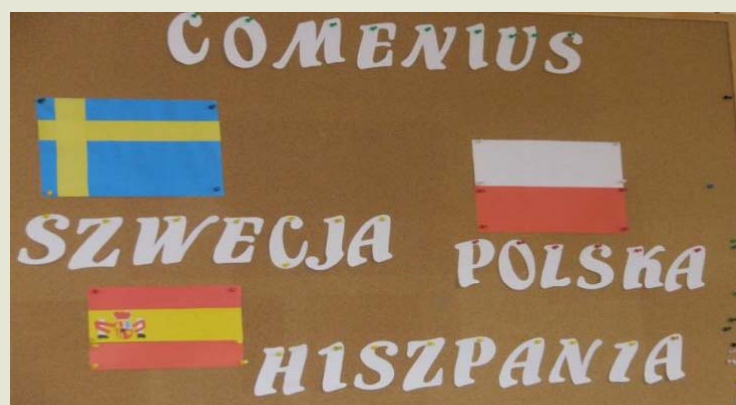 COMENIUS
SZWECJA
POLSKA
HISZPANIA